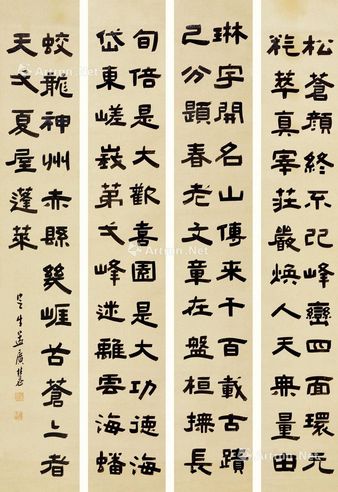 松蒼顏終不改峰巒四面環先
粹萃真宰莊嚴煥人天無量由
琳宇開名山傳來千百載古蹟
己分題春老文章在盤桓撫長
旬倍是大歡喜園是大功德海
岱東嵯峩第弋峰迷離雲海蟠
蛟龍神州赤縣幾崕谷蒼二者
天弋夏屋蓬萊